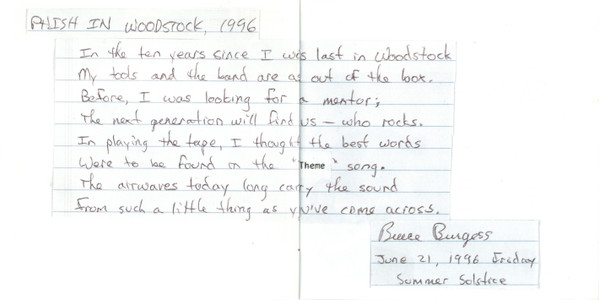 PHISH IN WOODSTOCK, 1996
In the ten years since I was last in Woodstock
My tools and the band are as out of the box.
Before, I was looking for a mentor;
The next generation will find us – who rocks.
In playing the tape, I thought the best words
Were to be found on the "Theme" song.
The airwaves today long carry the sound
From such a little thing as you've come across.
Bruce Burgess
June 21, 1996 Friday
Summer Solstice